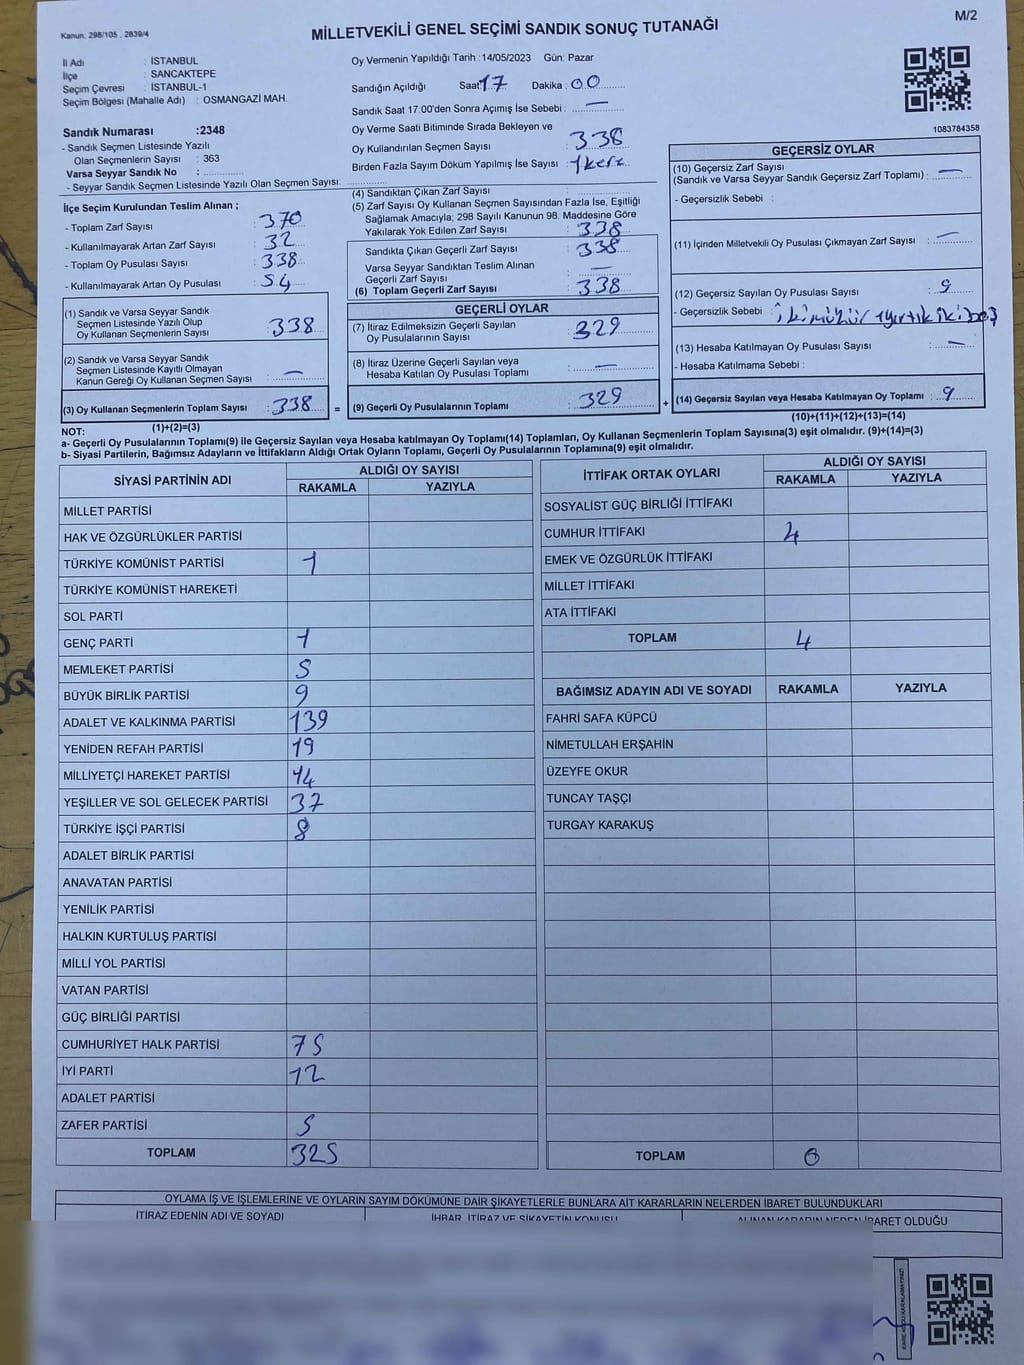 Kanun: 298/105 , 2839/4
MİLLETVEKİLİ GENEL SEÇİMİ SANDIK SONUÇ TUTANAĞI
M/2
İl Adı : İSTANBUL
İlçe : SANCAKTEPE
Seçim Çevresi : İSTANBUL-1
Seçim Bölgesi (Mahalle Adı) : OSMANGAZİ MAH.
Sandık Numarası :2348
- Sandık Seçmen Listesinde Yazılı
Olan Seçmenlerin Sayısı : 363
Varsa Seyyar Sandık No :
- Seyyar Sandık Seçmen Listesinde Yazılı Olan Seçmen Sayısı:
Oy Vermenin Yapıldığı Tarih :14/05/2023 Gün: Pazar
Sandığın Açıldığı Saat: 17 Dakika : 00
Sandık Saat 17:00'den Sonra Açımış İse Sebebi : —
Oy Verme Saati Bitiminde Sırada Bekleyen ve
Oy Kullandırılan Seçmen Sayısı 338
Birden Fazla Sayım Döküm Yapılmış İse Sayısı : 1 kere
1083784358
İlçe Seçim Kurulundan Teslim Alınan ;
- Toplam Zarf Sayısı : 370
- Kullanılmayarak Artan Zarf Sayısı : 32
- Toplam Oy Pusulası Sayısı : 338
- Kullanılmayarak Artan Oy Pusulası : 54
(1) Sandık ve Varsa Seyyar Sandık
Seçmen Listesinde Yazılı Olup
Oy Kullanan Seçmenlerin Sayısı : 338
(2) Sandık ve Varsa Seyyar Sandık
Seçmen Listesinde Kayıtlı Olmayan
Kanun Gereği Oy Kullanan Seçmen Sayısı : —
(3) Oy Kullanan Seçmenlerin Toplam Sayısı : 338
(1)+(2)=(3)
(4) Sandıktan Çıkan Zarf Sayısı :
(5) Zarf Sayısı Oy Kullanan Seçmen Sayısından Fazla İse, Eşitliği
Sağlamak Amacıyla; 298 Sayılı Kanunun 98. Maddesine Göre
Yakılarak Yok Edilen Zarf Sayısı : 338
Sandıkta Çıkan Geçerli Zarf Sayısı : 338
Varsa Seyyar Sandıktan Teslim Alınan
Geçerli Zarf Sayısı : —
(6) Toplam Geçerli Zarf Sayısı : 338
GEÇERLİ OYLAR
(7) İtiraz Edilmeksizin Geçerli Sayılan
Oy Pusulalarının Sayısı : 329
(8) İtiraz Üzerine Geçerli Sayılan veya
Hesaba Katılan Oy Pusulası Toplamı : —
= (9) Geçerli Oy Pusulalarının Toplamı : 329 +
GEÇERSİZ OYLAR
(10) Geçersiz Zarf Sayısı
(Sandık ve Varsa Seyyar Sandık Geçersiz Zarf Toplamı) : —
- Geçersizlik Sebebi :
(11) İçinden Milletvekili Oy Pusulası Çıkmayan Zarf Sayısı : —
(12) Geçersiz Sayılan Oy Pusulası Sayısı : 9
- Geçersizlik Sebebi : iki mühür yırtık
(13) Hesaba Katılmayan Oy Pusulası Sayısı : —
- Hesaba Katılmama Sebebi :
(14) Geçersiz Sayılan veya Hesaba Katılmayan Oy Toplamı : 9
(10)+(11)+(12)+(13)=(14)
NOT:
a- Geçerli Oy Pusulalarının Toplamı(9) ile Geçersiz Sayılan veya Hesaba katılmayan Oy Toplamı(14) Toplamları, Oy Kullanan Seçmenlerin Toplam Sayısına(3) eşit olmalıdır. (9)+(14)=(3)
b- Siyasi Partilerin, Bağımsız Adayların ve İttifakların Aldığı Ortak Oyların Toplamı, Geçerli Oy Pusulalarının Toplamına(9) eşit olmalıdır.
SİYASİ PARTİNİN ADI ALDIĞI OY SAYISI
RAKAMLA YAZIYLA
MİLLET PARTİSİ
HAK VE ÖZGÜRLÜKLER PARTİSİ
TÜRKİYE KOMÜNİST PARTİSİ 1
TÜRKİYE KOMÜNİST HAREKETİ
SOL PARTİ
GENÇ PARTİ 1
MEMLEKET PARTİSİ 5
BÜYÜK BİRLİK PARTİSİ 9
ADALET VE KALKINMA PARTİSİ 139
YENİDEN REFAH PARTİSİ 19
MİLLİYETÇİ HAREKET PARTİSİ 14
YEŞİLLER VE SOL GELECEK PARTİSİ 37
TÜRKİYE İŞÇİ PARTİSİ 8
ADALET BİRLİK PARTİSİ
ANAVATAN PARTİSİ
YENİLİK PARTİSİ
HALKIN KURTULUŞ PARTİSİ
MİLLİ YOL PARTİSİ
VATAN PARTİSİ
GÜÇ BİRLİĞİ PARTİSİ
CUMHURİYET HALK PARTİSİ 75
İYİ PARTİ 12
ADALET PARTİSİ
ZAFER PARTİSİ 5
TOPLAM 325
İTTİFAK ORTAK OYLARI ALDIĞI OY SAYISI
RAKAMLA YAZIYLA
SOSYALİST GÜÇ BİRLİĞİ İTTİFAKI
CUMHUR İTTİFAKI 4
EMEK VE ÖZGÜRLÜK İTTİFAKI
MİLLET İTTİFAKI
ATA İTTİFAKI
TOPLAM 4
BAĞIMSIZ ADAYIN ADI VE SOYADI RAKAMLA YAZIYLA
FAHRİ SAFA KÜPCÜ
NİMETULLAH ERŞAHİN
ÜZEYFE OKUR
TUNCAY TAŞÇI
TURGAY KARAKUŞ
TOPLAM 0
OYLAMA İŞ VE İŞLEMLERİNE VE OYLARIN SAYIM DÖKÜMÜNE DAİR ŞİKAYETLERLE BUNLARA AİT KARARLARIN NELERDEN İBARET BULUNDUKLARI
İTİRAZ EDENİN ADI VE SOYADI
İHBAR, İTİRAZ VE ŞİKAYETİN KONUSU
ALINAN KARARIN NEDEN İBARET OLDUĞU